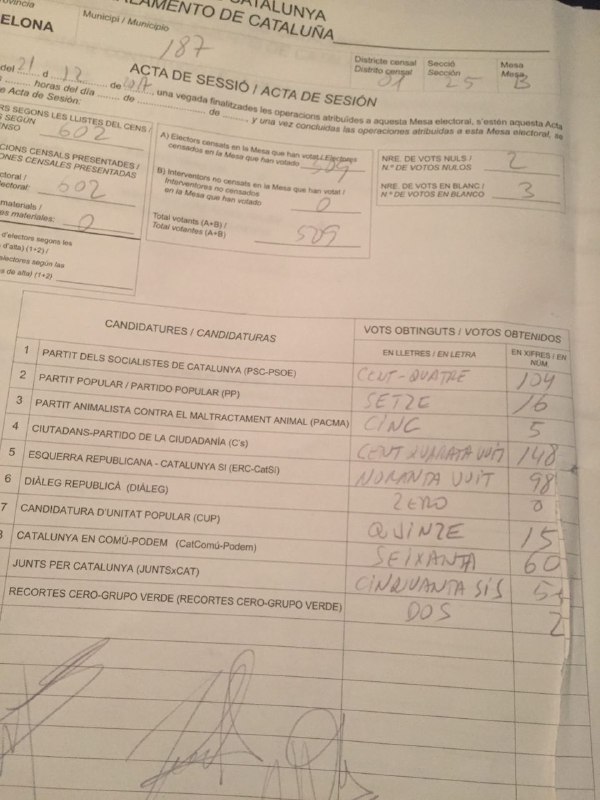 CATALUNYA
PARLAMENTO DE CATALUÑA
Província
ELONA
Municipi / Municipio
187
Districte censal
Distrito censal
01
Secció
Sección
25
Mesa
Mesa
B
ACTA DE SESSIÓ / ACTA DE SESIÓN
del 21 d 12 de una vegada finalitzades les operacions atribuïdes a aquesta Mesa electoral, s'estén aquesta Acta
horas del día de de y una vez concluidas las operaciones atribuidas a esta Mesa electoral, se
e Acta de Sesión:
RS SEGONS LES LLISTES DEL CENS /
SEGÚN
ENSO 602
CIONS CENSALS PRESENTADES /
ONES CENSALES PRESENTADAS
toral /
lectoral: 602
materials /
es materiales: 0
d'electors segons les
d'alta) (1+2) /
electores según las
s de alta) (1+2)
A) Electors censats en la Mesa que han votat / Electores
censados en la Mesa que han votado 509
B) Interventors no censats en la Mesa que han votat /
Interventores no censados
en la Mesa que han votado 0
Total votants (A+B) /
Total votantes (A+B) 509
NRE. DE VOTS NULS /
N.º DE VOTOS NULOS 2
NRE. DE VOTS EN BLANC /
N.º DE VOTOS EN BLANCO 3
CANDIDATURES / CANDIDATURAS
VOTS OBTINGUTS / VOTOS OBTENIDOS
EN LLETRES / EN LETRA
EN XIFRES / EN
NÚM
1 PARTIT DELS SOCIALISTES DE CATALUNYA (PSC-PSOE) CENT-QUATRE 104
2 PARTIT POPULAR / PARTIDO POPULAR (PP) SETZE 16
3 PARTIT ANIMALISTA CONTRA EL MALTRACTAMENT ANIMAL (PACMA) CINC 5
4 CIUTADANS-PARTIDO DE LA CIUDADANÍA (C's) CENT QUARATA VUIT 148
5 ESQUERRA REPUBLICANA - CATALUNYA SI (ERC-CatSí) NORANTA VUIT 98
6 DIÀLEG REPUBLICÀ (DIÀLEG) ZERO 0
7 CANDIDATURA D'UNITAT POPULAR (CUP) QUINZE 15
CATALUNYA EN COMÚ-PODEM (CatComú-Podem) SEIXANTA 60
JUNTS PER CATALUNYA (JUNTSxCAT) CINQUANTA SIS 5
RECORTES CERO-GRUPO VERDE (RECORTES CERO-GRUPO VERDE) DOS 2